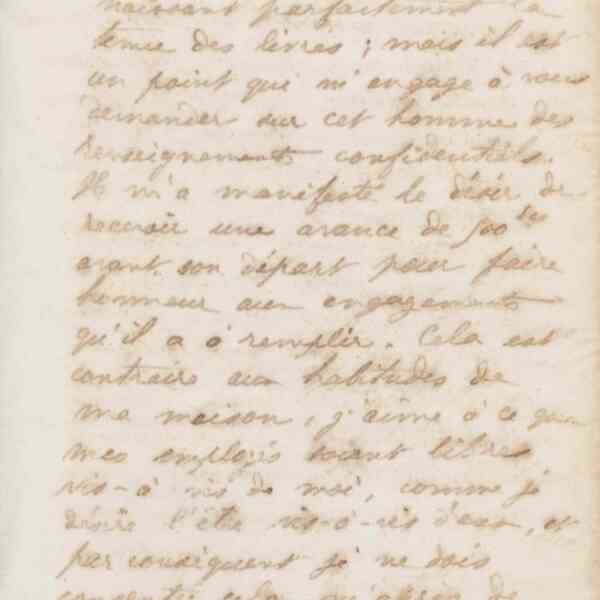 naissant parfaitement la
tenue des livres ; mais il est
un point qui m'engage à vous
demander sur cet homme des
renseignements confidentiels.
Il m'a manifesté le désir de
recevoir une avance de 500 fcs
avant son départ pour faire
honneur aux engagements
qu'il a à remplir. Cela est
contraire aux habitudes de
ma maison, j'aime à ce que
mes employés soient libres
vis-à vis de moi, comme je
désire l'être vis-à-vis d'eux, et
par conséquent je ne dois
consentir cela qu'après de